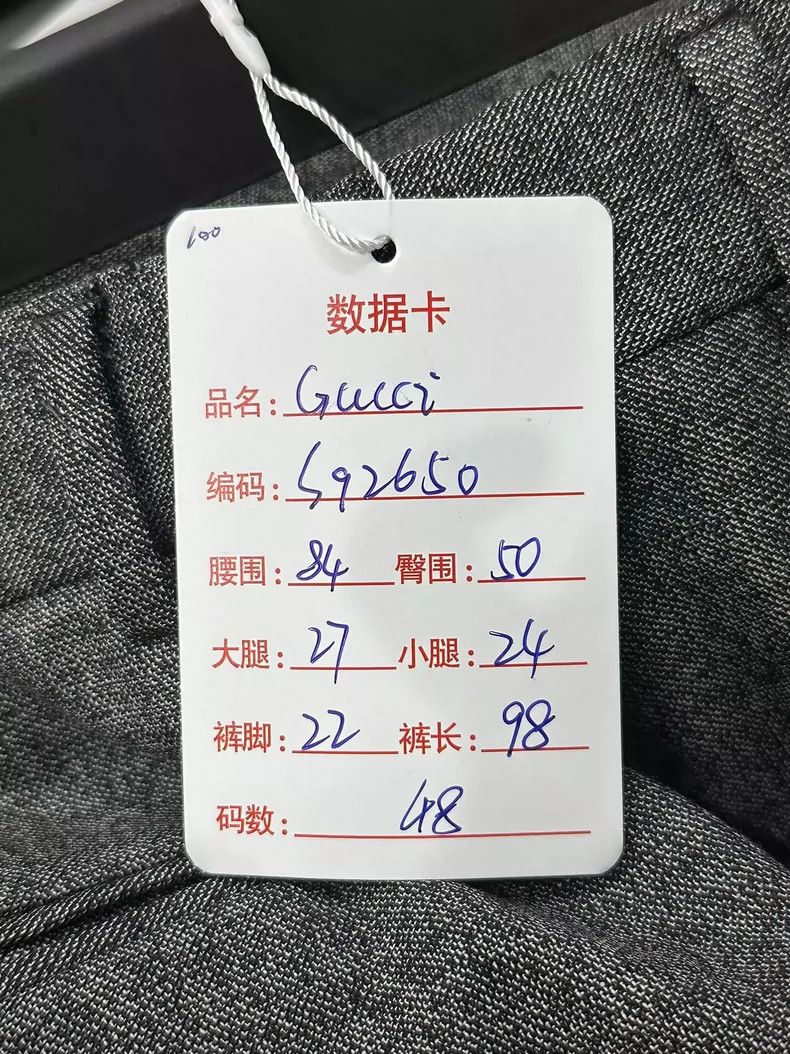 100
数据卡
品名: Gucci
编码: S92650
腰围: 84 臀围: 50
大腿: 27 小腿: 24
裤脚: 22 裤长: 98
码数: 48